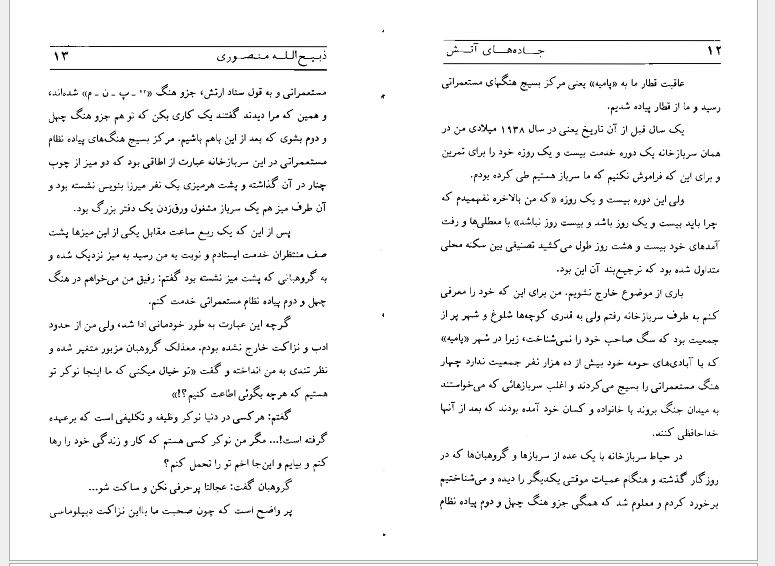 ۱۲ جاده‌های آتش
عاقبت قطار ما به «پامیه» یعنی مرکز بسیج هنگهای مستعمراتی
رسید و ما از قطار پیاده شدیم.
یک سال قبل از آن تاریخ یعنی در سال ۱۹۳۸ میلادی من در
همان سربازخانه یک دوره خدمت بیست و یک روزه خود را برای تمرین
و برای این که فراموش نکنیم که ما سرباز هستیم طی کرده بودم.
ولی این دوره بیست و یک روزه «که من بالاخره نفهمیدم که
چرا باید بیست و یک روز باشد و بیست روز نباشد» با معطلی‌ها و رفت
آمدهای خود بیست و هشت روز طول می‌کشید تصنیفی بین سکنه محلی
متداول شده بود که ترجیع‌بند آن این بود.
باری از موضوع خارج نشویم. من برای این که خود را معرفی
کنم به طرف سربازخانه رفتم ولی به قدری کوچه‌ها شلوغ و شهر پر از
جمعیت بود که سگ صاحب خود را نمی‌شناخت، زیرا در شهر «پامیه»
که با آبادی‌های حومه خود بیش از ده هزار نفر جمعیت ندارد چهار
هنگ مستعمراتی را بسیج می‌کردند و اغلب سربازهائی که می‌خواستند
به میدان جنگ بروند با خانواده و کسان خود آمده بودند که بعد از آنها
خداحافظی کنند.
در حیاط سربازخانه با یک عده از سربازها و گروهبان‌ها که در
روزگار گذشته و هنگام عمیات موقتی یکدیگر را دیده و می‌شناختیم
برخورد کردم و معلوم شد که همگی جزو هنگ چهل و دوم پیاده نظام
ذبیح‌الله منصوری ۱۳
مستعمراتی و به قول ستاد ارتش، جزو هنگ «۴۲ ـ پ ـ ن ـ م» شده‌اند،
و همین که مرا دیدند گفتند یک کاری بکن که تو هم جزو هنگ چهل
و دوم بشوی که بعد از این باهم باشیم. مرکز بسیج هنگ‌های پیاده نظام
مستعمراتی در این سربازخانه عبارت از اطاقی بود که دو میز از چوب
چنار در آن گذاشته و پشت هرمیزی یک نفر میرزا بنویس نشسته بود و
آن طرف میز هم یک سرباز مشغول ورق‌زدن یک دفتر بزرگ بود.
پس از این که یک ربع ساعت مقابل یکی از این میزها پشت
صف منتظران خدمت ایستادم و نوبت به من رسید به میز نزدیک شده و
به گروهبانی که پشت میز نشسته بود گفتم: رفیق من می‌خواهم در هنگ
چهل و دوم پیاده نظام مستعمراتی خدمت کنم.
گرچه این عبارت به طور خودمانی ادا شد، ولی من از حدود
ادب و نزاکت خارج نشده بودم. معذلک گروهبان مزبور متغیر شده و
نظر تندی به من انداخته و گفت «تو خیال میکنی که ما اینجا نوکر تو
هستیم که هرچه بگوئی اطاعت کنیم؟!»
گفتم: هرکسی در دنیا نوکر وظیفه و تکلیفی است که برعهده
گرفته است!... مگر من نوکر کسی هستم که کار و زندگی خود را رها
کنم و بیایم و این‌جا اخم تو را تحمل کنم؟
گروهبان گفت: عجالتا پرحرفی نکن و ساکت شو...
پر واضح است که چون صحبت ما بااین نزاکت دیپلوماسی